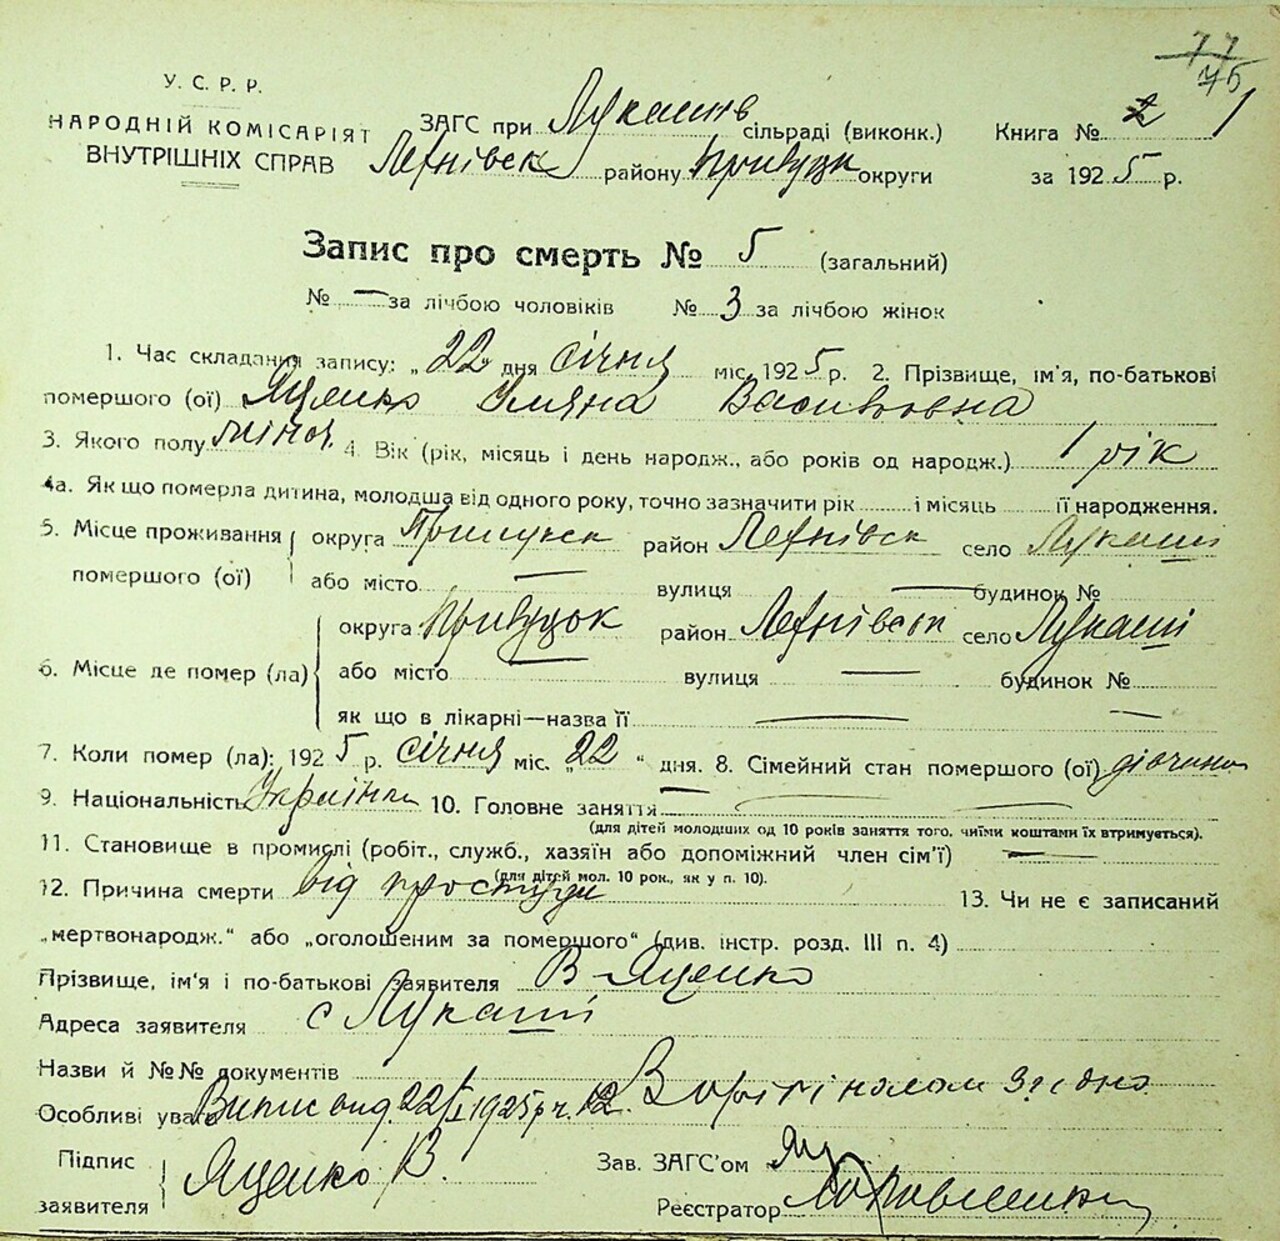 77
75
У. С. Р. Р.
НАРОДНІЙ КОМІСАРІЯТ
ВНУТРІШНІХ СПРАВ
ЗАГС при Лукашів сільраді (виконк.) Книга № 2 1
району Прилуцк округи за 1925 р.
Запис про смерть № 5 (загальний)
№ — за лічбою чоловіків № 3 за лічбою жінок
1. Час складання запису: „22„ дня січня міс. 1925 р. 2. Прізвище, ім'я, по-батькові
помершого (ої) Яценко Уляна Василовна
3. Якого полу жіноч. 4. Вік (рік, місяць і день народж., або років од народж.) 1 рік
4а. Як що померла дитина, молодша від одного року, точно зазначити рік і місяць її народження.
5. Місце проживання помершого (ої) округа район село Лукаші
або місто — вулиця — будинок №
6. Місце де помер (ла) округа Прилуцьк район село Лукаші
або місто — вулиця — будинок №
як що в лікарні—назва її — —
7. Коли помер (ла): 1925 р. січня міс. „22 “ дня. 8. Сімейний стан помершого (ої) дівчина
9. Національність Українка 10. Головне заняття —
(для дітей молодших од 10 років заняття того, чиїми коштами їх втримується).
11. Становище в промислі (робіт., служб., хазяїн або допоміжний член сім'ї) —
(для дітей мол. 10 рок., як у п. 10).
12. Причина смерти від простуди 13. Чи не є записаний
„мертвонародж.“ або „оголошеним за помершого“ (див. інстр. розд. III п. 4)
Прізвище, ім'я і по-батькові заявителя В Яценко
Адреса заявителя с Лукаші
Назви й №№ документів
Особливі уваги Випис вид. 22/I 1925 р ч. 12. З орігіналом згідно
Підпис заявителя Яценко В. Зав. ЗАГС'ом
Реєстратор